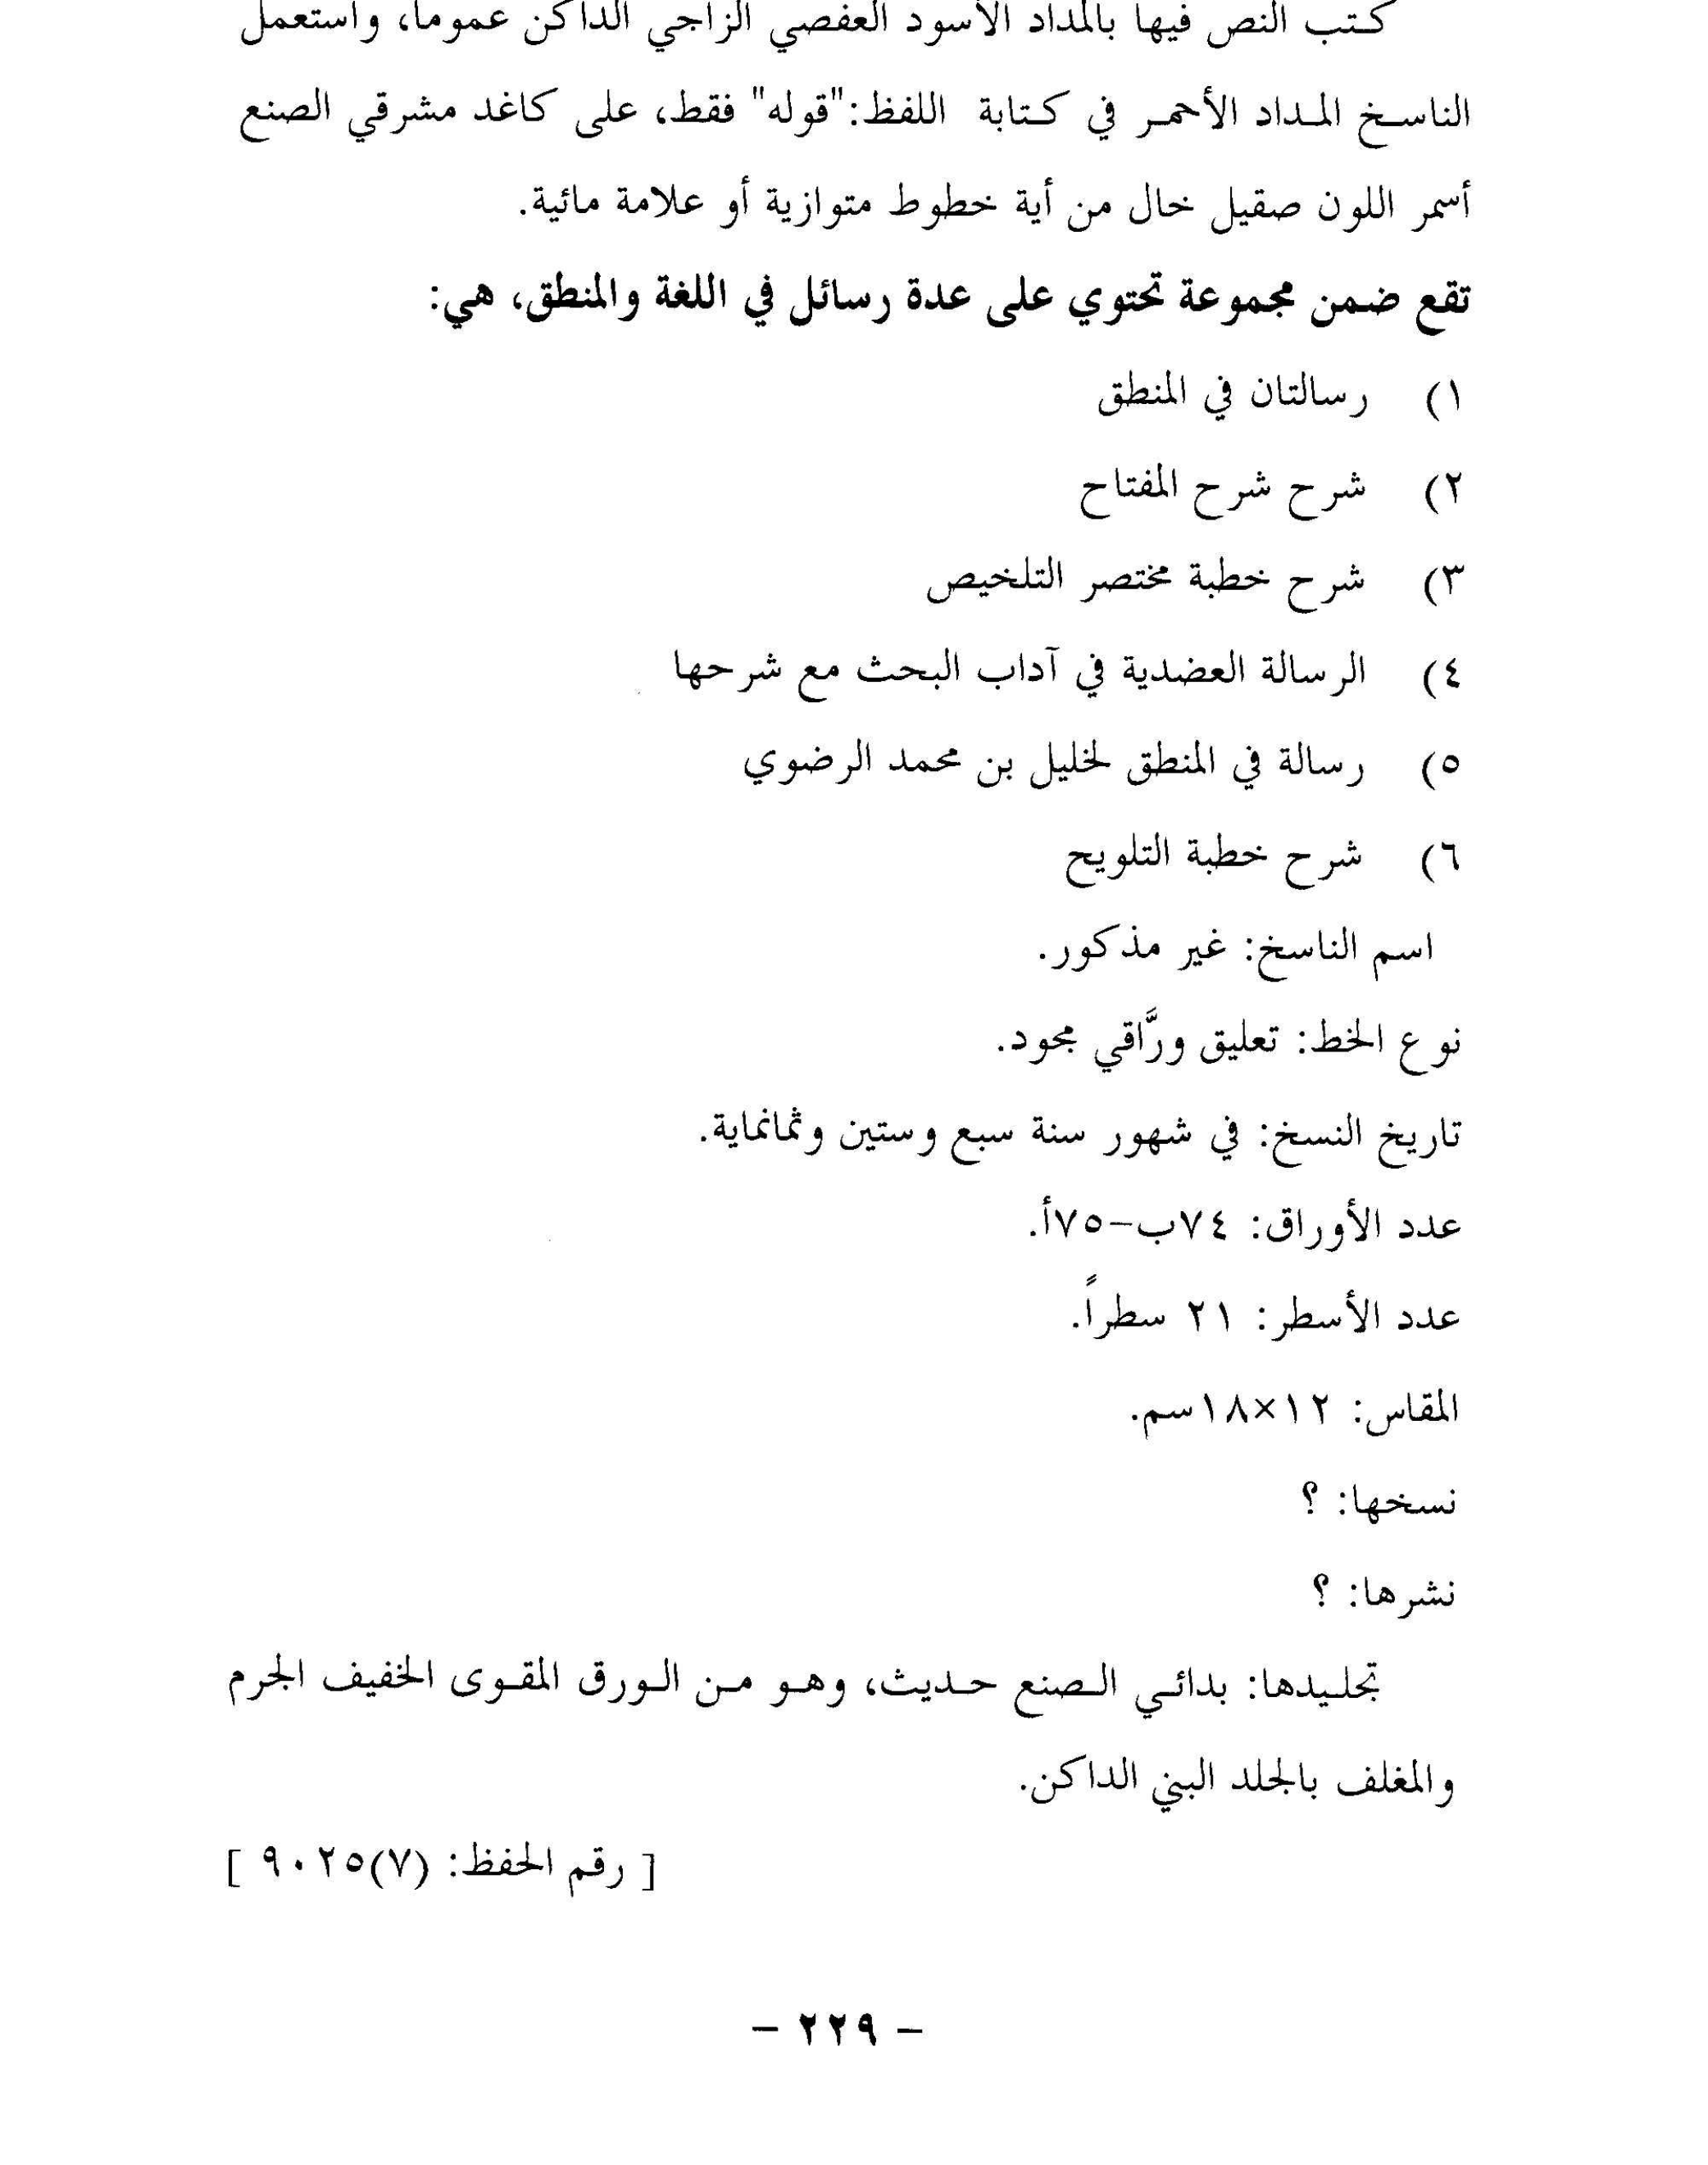 كتب النص فيها بالمداد الأسود العفصي الزاجي الداكن عموماً، واستعمل
الناسخ المداد الأحمر في كتابة اللفظ:"قوله" فقط، على كاغد مشرقي الصنع
أسمر اللون صقيل خال من أية خطوط متوازية أو علامة مائية.
تقع ضمن مجموعة تحتوي على عدة رسائل في اللغة والمنطق، هي:
١) رسالتان في المنطق
٢) شرح شرح المفتاح
٣) شرح خطبة مختصر التلخيص
٤) الرسالة العضدية في آداب البحث مع شرحها
٥) رسالة في المنطق لخليل بن محمد الرضوي
٦) شرح خطبة التلويح
اسم الناسخ: غير مذكور.
نوع الخط: تعليق ورَّاقي مجود.
تاريخ النسخ: في شهور سنة سبع وستين وثمانماية.
عدد الأوراق: ٧٤ب-٧٥أ.
عدد الأسطر: ٢١ سطراً.
المقاس: ١٢×١٨سم.
نسخها: ؟
نشرها: ؟
تجليدها: بدائي الصنع حديث، وهو من الورق المقوى الخفيف الجرم
والمغلف بالجلد البني الداكن.
[ رقم الحفظ: (٧)٩٠٢٥ ]
- ٢٢٩ -